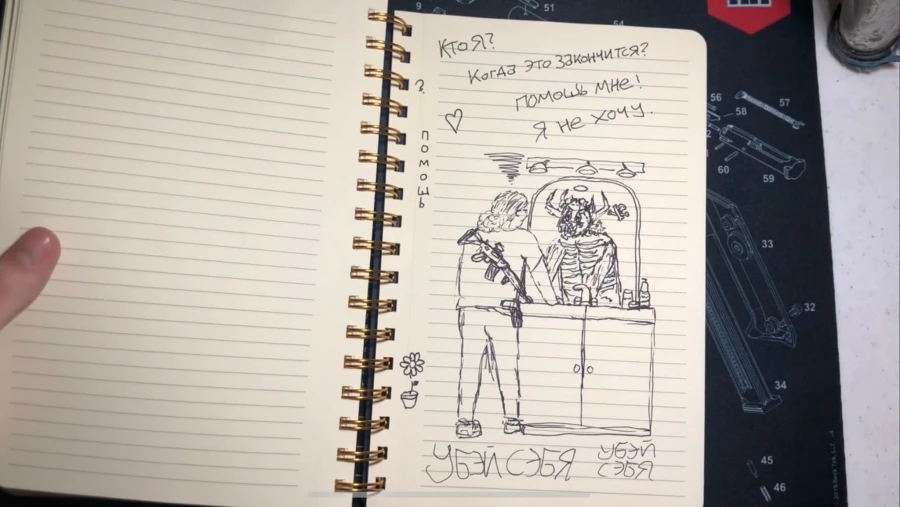 Кто Я?
Когда это закончится?
помошь мне!
Я не хочу.
?
помошь
УБЭЙ СЭБЯ
УБЭЙ
СЭБЯ
9
51
56
57
58
60
59
33
32
34
45
46